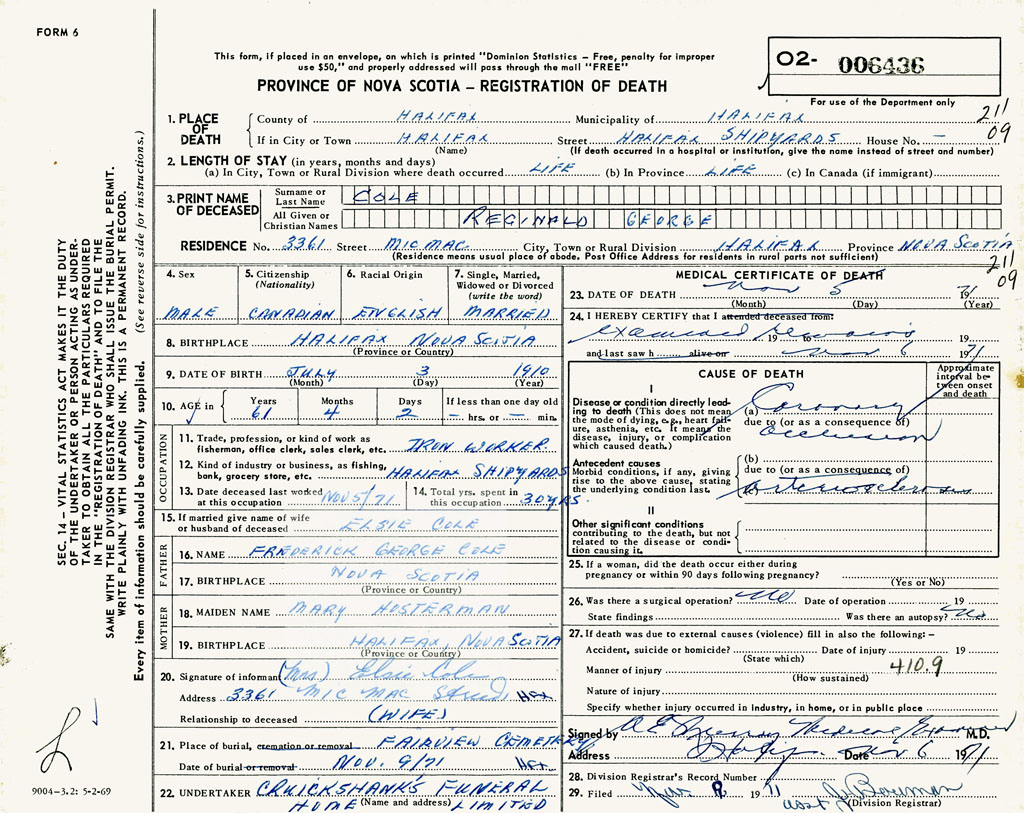 FORM 6
This form, if placed in an envelope, on which is printed "Dominion Statistics – Free, penalty for improper
use $50," and properly addressed will pass through the mail "FREE"
PROVINCE OF NOVA SCOTIA – REGISTRATION OF DEATH
02- 006436
For use of the Department only
211
09
1. PLACE OF DEATH
County of HALIFAX Municipality of HALIFAX
If in City or Town HALIFAX Street HALIFAX SHIPYARDS House No. –
(Name) (If death occurred in a hospital or institution, give the name instead of street and number)
2. LENGTH OF STAY (in years, months and days)
(a) In City, Town or Rural Division where death occurred LIFE (b) In Province LIFE (c) In Canada (if immigrant)
3. PRINT NAME OF DECEASED
Surname or Last Name COLE
All Given or Christian Names REGINALD GEORGE
RESIDENCE No. 3361 Street MIC MAC City, Town or Rural Division HALIFAX Province NOVA SCOTIA
(Residence means usual place of abode. Post Office Address for residents in rural parts not sufficient)
211
09
4. Sex
MALE
5. Citizenship (Nationality)
CANADIAN
6. Racial Origin
ENGLISH
7. Single, Married, Widowed or Divorced (write the word)
MARRIED
8. BIRTHPLACE HALIFAX NOVA SCOTIA
(Province or Country)
9. DATE OF BIRTH JULY 3 1910
(Month) (Day) (Year)
10. AGE in
Years Months Days If less than one day old
61 4 2 – hrs. or – min.
OCCUPATION
11. Trade, profession, or kind of work as
fisherman, office clerk, sales clerk, etc. IRON WORKER
12. Kind of industry or business, as fishing,
bank, grocery store, etc. HALIFAX SHIPYARDS
13. Date deceased last worked
at this occupation NOV 5/71
14. Total yrs. spent in
this occupation 30 YRS.
15. If married give name of wife
or husband of deceased ELSIE COLE
FATHER
16. NAME FREDERICK GEORGE COLE
17. BIRTHPLACE NOVA SCOTIA
(Province or Country)
MOTHER
18. MAIDEN NAME MARY HOSTERMAN
19. BIRTHPLACE HALIFAX, NOVA SCOTIA
(Province or Country)
20. Signature of informant (Mrs) Elsie Cole
Address 3361 MIC MAC Street, Hfx
Relationship to deceased (WIFE)
21. Place of burial, cremation or removal FAIRVIEW CEMETERY
Date of burial or removal NOV. 9/71 Hfx.
22. UNDERTAKER CRUICKSHANKS FUNERAL
HOME (Name and address) LIMITED
MEDICAL CERTIFICATE OF DEATH
23. DATE OF DEATH Nov 5 1971
(Month) (Day) (Year)
24. I HEREBY CERTIFY that I attended deceased from:
examined remains 19 to
and last saw h alive on Nov 6 1971
CAUSE OF DEATH
Approximate interval between onset and death
I
Disease or condition directly leading to death (This does not mean
the mode of dying, e.g., heart failure, asthenia, etc. It means the
disease, injury, or complication
which caused death.)
(a) Coronary
due to (or as a consequence of)
occlusion
Antecedent causes
Morbid conditions, if any, giving
rise to the above cause, stating
the underlying condition last.
(b)
due to (or as a consequence of)
arteriosclerosis
II
Other significant conditions
contributing to the death, but not
related to the disease or condition causing it.
25. If a woman, did the death occur either during
pregnancy or within 90 days following pregnancy?
(Yes or No)
26. Was there a surgical operation? No Date of operation 19
State findings Was there an autopsy? No
27. If death was due to external causes (violence) fill in also the following:–
Accident, suicide or homicide? Date of injury 19
(State which)
Manner of injury 410.9
(How sustained)
Nature of injury
Specify whether injury occurred in industry, in home, or in public place
Signed by Medical Examiner M.D.
Address Date Nov 6 1971
28. Division Registrar's Record Number
29. Filed Nov. 8 1971 Asst J Bowman
(Division Registrar)
SEC. 14 – VITAL STATISTICS ACT MAKES IT THE DUTY
OF THE UNDERTAKER OR PERSON ACTING AS UNDER-
TAKER TO OBTAIN ALL THE PARTICULARS REQUIRED
IN THE "REGISTRATION OF DEATH" AND TO FILE THE
SAME WITH THE DIVISION REGISTRAR WHO SHALL ISSUE THE BURIAL PERMIT.
WRITE PLAINLY WITH UNFADING INK. THIS IS A PERMANENT RECORD.
Every item of information should be carefully supplied. (See reverse side for instructions.)
9004-3.2: 5-2-69